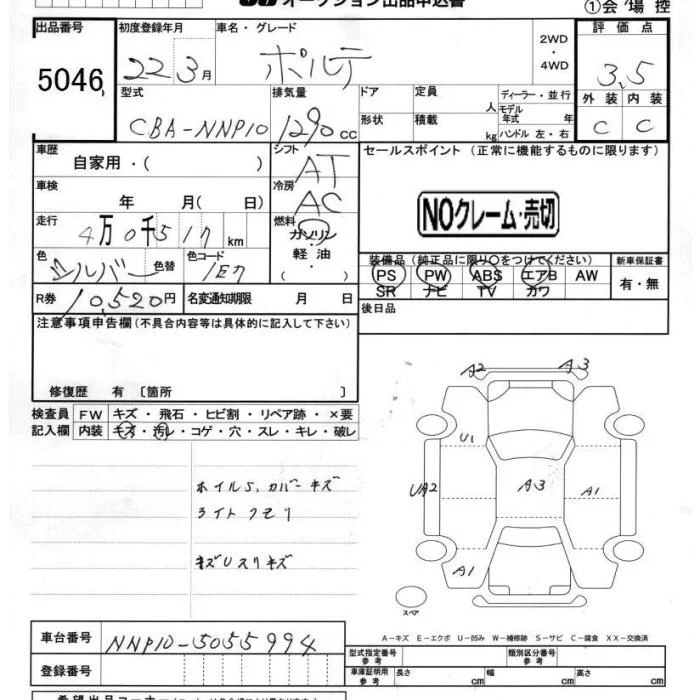 オークション出品申込書
①会 場 控
出品番号 5046
初度登録年月 22 3月
車名・グレード ポルテ
2WD・4WD
評価点 3,5
外装 内装
C C
型式 CBA-NNP10
排気量 1290 cc
ドア 定員 人
形状 積載 kg
ディーラー・並行
モデル年式 年
ハンドル 左・右
車歴 自家用・( )
シフト AT
セールスポイント (正常に機能するものに限ります)
車検 年 月( 日)
冷房 AC
NOクレーム・売切
走行 4万0千517 km
燃料 ガソリン・軽油
( ・ )
色 シルバー 色替
色コード 1E7
装備品 (純正品に限り○をつけてください)
PS PW ABS エアB AW
SR ナビ TV カワ
新車保証書 有・無
R券 10,520円
名変通知期限 月 日
後日品
注意事項申告欄 (不具合内容等は具体的に記入して下さい)
修復歴 有 〔箇所 〕
検査員 FW キズ・飛石・ヒビ割・リペア跡・×要
記入欄 内装 キズ・汚レ・コゲ・穴・スレ・キレ・破レ
ホイルS, カバーキズ
ライトクモリ
キズUスリキズ
A2 A3
U1
UA2 A3 A1
A1
スペア
A－キズ E－エクボ U－凹み W－補修跡 S－サビ C－腐食 XX－交換済
車台番号 NNP10-5055994
登録番号
型式指定番号 参考
類別区分番号 参考
車庫証明用 参考 長さ cm 幅 cm 高さ cm